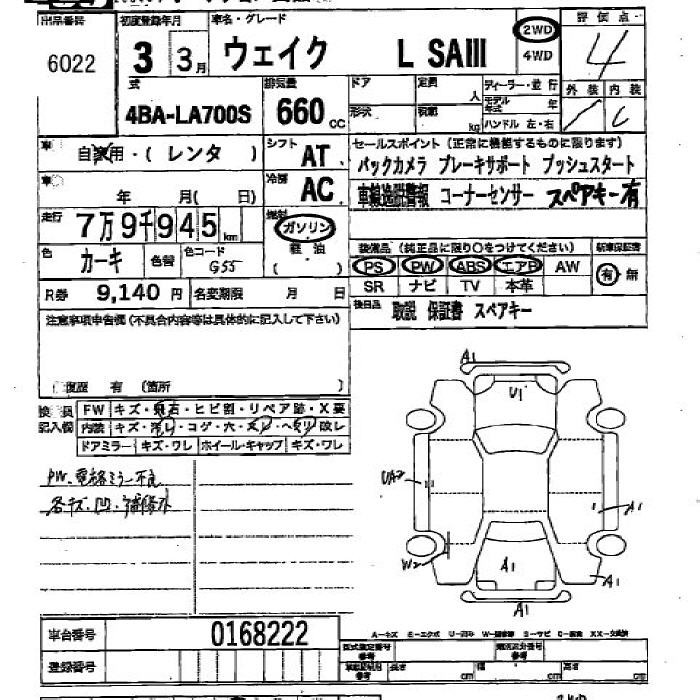 出品番号 初度登録年月 車名・グレード 評価点
6022 3 3月 ウェイク L SAIII 2WD 4WD 4
外装 内装
式 排気量 ドア 定員 人 ディーラー・並行
4BA-LA700S 660cc 形状 kg モデル年式 年 ハンドル 左・右
自家用・(レンタ) シフト AT セールスポイント(正常に機能するものに限ります)
バックカメラ ブレーキサポート プッシュスタート
年 月(日) 冷房 AC 車線逸脱警報 コーナーセンサー スペアキー有
走行 7万9千945km 燃料 ガソリン 軽油 ( )
色 カーキ 色替 色コード G55
装備品(純正品に限り○をつけてください) 新車保証書
PS PW ABS エアB AW 有 無
SR ナビ TV 本革
R券 9,140円 名変期限 月 日 後日品 取説 保証書 スペアキー
注意事項申告欄(不具合内容等は具体的に記入して下さい)
修復歴 有 (箇所 )
検査員記入欄 FW キズ・飛石・ヒビ割・リペア跡・X要
内装 キズ・汚レ・コゲ・穴・スレ・ヘタリ・破レ
ドアミラー キズ・ワレ ホイール・キャップ キズ・ワレ
PW、電格ミラー不良
各キズ・凹・補修外
A1
U1
UA2
A1
W2
A1
A1
A1
車台番号 0168222
A-キズ E-エクボ U-凹み W-補修跡 S-サビ C-腐食 XX-交換済
登録番号 型式指定番号 参考 類別区分番号 参考
長さ cm 幅 cm 高さ cm